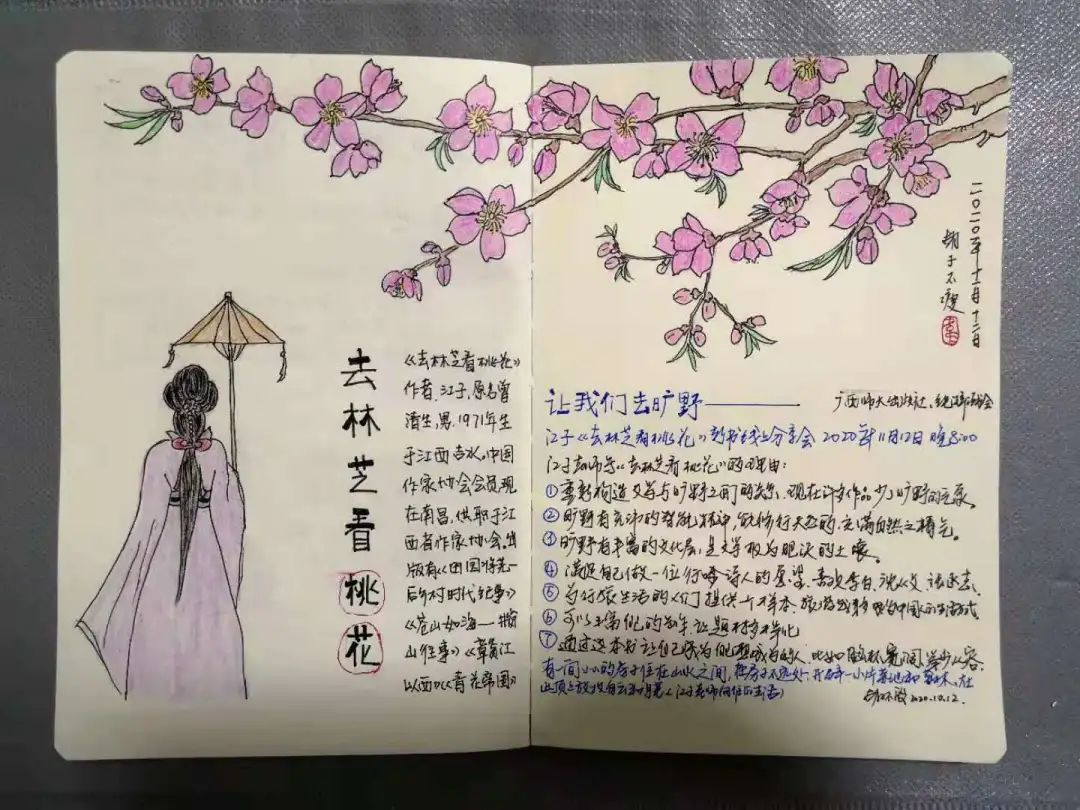 去林芝看桃花
《去林芝看桃花》
作者、江子,原名曾
清生,男.1971年生
于江西吉水,中国
作家协会会员,现
在南昌,供职于江
西省作家协会.出
版有《田园将芜—
后乡村时代纪事》
《苍山如海—井冈
山往事》《黄江
以西》《青花帝国》
二〇二〇年十一月十二日
胡子不瘦
让我们去旷野——
广西师大出版社、
江子《去林芝看桃花》新书线上分享会 2020年11月12日 晚8:00
江子老师写《去林芝看桃花》的理由:
①重新构造文学与旷野之间的关系、现在许多作品少了旷野的元素
②旷野有充沛的智能精神,的充满自然之精气。
③旷野有丰富的文化层,是文学极为肥沃的土壤。
④满足自己做一位行吟诗人的愿望、喜欢李白、沈从文、张承志、
⑤为行旅生活的人们提供一个样本、旅游越来越中国人的生活方式
⑥可以丰富他的创作让题材多样化
⑦通过这本书让自己成为他想成为的人、比如宽阔、从容、
有一间小小的房子住在山水之间,在房子不远处、开辟一小片菜地和、在
山顶上放牧白云(江子老师向往的生活)
胡不瘦 2020.10.12.